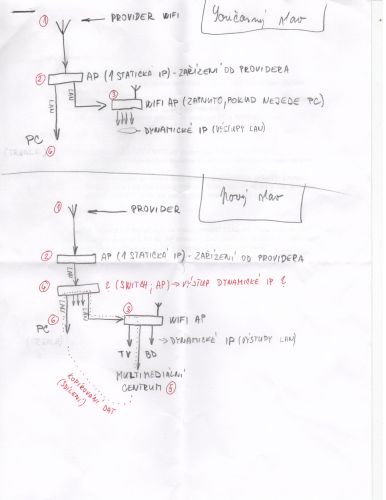 Současný stav
1 PROVIDER WIFI
2 AP (1 STATICKÁ IP) - ZAŘÍZENÍ OD PROVIDERA
LAN
LAN
3 WIFI AP (ZAPNUTO, POKUD NEJEDE PC)
DYNAMICKÉ IP (VÝSTUPY LAN)
PC
Nový stav
1 PROVIDER
2 AP (1 STATICKÁ IP) - ZAŘÍZENÍ OD PROVIDERA
LAN
? (SWITCH; AP) → VÝSTUP DYNAMICKÉ IP ?
LAN
LAN
PC
WIFI AP
DYNAMICKÉ IP (VÝSTUPY LAN)
TV BD
MULTIMEDIÁLNÍ
CENTRUM 5
KOPÍROVÁNÍ DAT
(SDÍLENÍ)